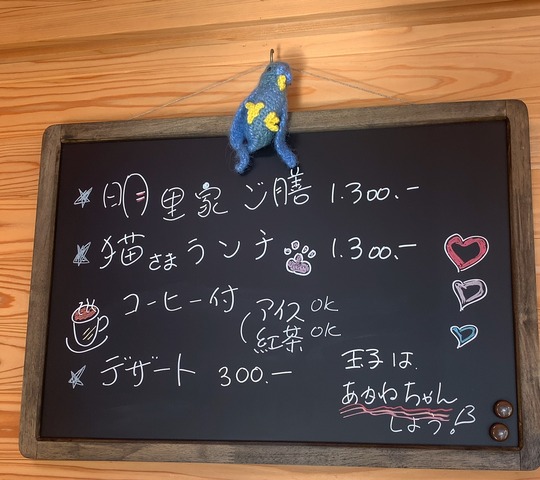 ☆ 明里家 ご膳 1.300.-
☆ 猫さまランチ 1.300.-
コーヒー付 (アイスOK
紅茶OK
☆ デザート 300.-
玉子は
あかねちゃん
しよう!